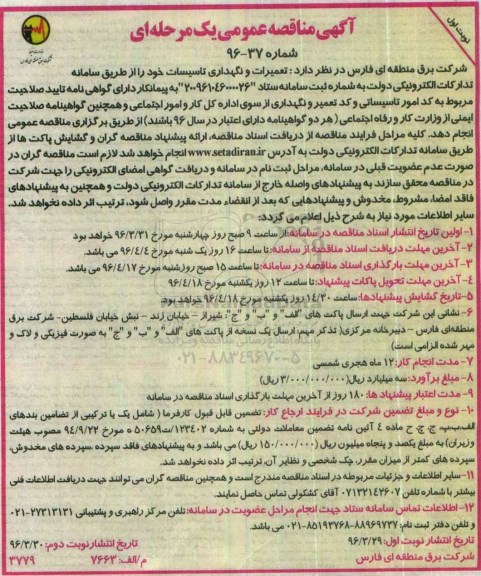 نوبت اول
آگهی مناقصه عمومی یک مرحله‌ای
شماره ۳۷-۹۶
شرکت برق منطقه ای فارس در نظر دارد : تعمیرات و نگهداری تاسیسات خود را از طریق سامانه
تدارکات الکترونیکی دولت به شماره ثبت سامانه ستاد "۲۰۰۹۶۱۰۴۶۰۰۰۰۲۶" به پیمانکار دارای گواهی نامه تایید صلاحیت
مربوط به کد امور تاسیساتی و کد تعمیر و نگهداری از سوی اداره کل کار و امور اجتماعی و همچنین گواهینامه صلاحیت
ایمنی از وزارت کار و رفاه اجتماعی ( هر دو گواهینامه دارای اعتبار در سال ۹۶ باشند) از طریق برگزاری مناقصه عمومی
انجام دهد. کلیه مراحل فرایند مناقصه از دریافت اسناد مناقصه، ارائه پیشنهاد مناقصه گران و گشایش پاکت ها از
طریق سامانه تدارکات الکترونیکی دولت به آدرس www.setadiran.ir انجام خواهد شد لازم است مناقصه گران در
صورت عدم عضویت قبلی در سامانه، مراحل ثبت نام در سامانه و دریافت گواهی امضای الکترونیکی را جهت شرکت
در مناقصه محقق سازند به پیشنهادهای واصله خارج از سامانه تدارکات الکترونیکی دولت و همچنین به پیشنهادهای
فاقد امضا، مشروط، مخدوش و پیشنهادهایی که بعد از انقضاء مدت مقرر واصل شود، ترتیب اثر داده نخواهد شد.
سایر اطلاعات مورد نیاز به شرح ذیل اعلام می گردد:
۱- اولین تاریخ انتشار اسناد مناقصه در سامانه: از ساعت ۹ صبح روز چهارشنبه مورخ ۹۶/۳/۳۱ خواهد بود
۲- آخرین مهلت دریافت اسناد مناقصه از سامانه: تا ساعت ۱۶ روز یک شنبه مورخ ۹۶/۴/۴ می باشد.
۳- آخرین مهلت بارگذاری اسناد مناقصه در سامانه: تا ساعت ۱۵ صبح روز شنبه مورخ ۹۶/۴/۱۷ می باشد.
۴- آخرین مهلت تحویل پاکات پیشنهاد: تا ساعت ۱۲ روز یکشنبه مورخ ۹۶/۴/۱۸
۵- تاریخ گشایش پیشنهادها: ساعت ۱۴/۳۰ روز یکشنبه مورخ ۹۶/۴/۱۸ خواهد بود.
۶- نشانی این شرکت جهت ارسال پاکت های "الف" و "ب" و "ج": شیراز - خیابان زند - نبش خیابان فلسطین- شرکت برق
منطقه‌ای فارس - دبیرخانه مرکزی( تذکر مهم: ارسال یک نسخه از پاکت های "الف" و "ب" و "ج" به صورت فیزیکی و لاک و
مهر شده الزامی است)
۷- مدت انجام کار: ۱۲ ماه هجری شمسی
۸- مبلغ برآورد: سه میلیارد ریال(۳/۰۰۰/۰۰۰/۰۰۰ ریال)
۹- مدت اعتبار پیشنهاد ها: ۱۸۰ روز از آخرین مهلت بارگذاری اسناد مناقصه در سامانه
۱۰- نوع و مبلغ تضمین شرکت در فرایند ارجاع کار: تضمین قابل قبول کارفرما ( شامل یک یا ترکیبی از تضامین بندهای
الف،ب،پ، ج، چ، ح ماده ۴ آئین نامه تضمین معاملات دولتی به شماره ۱۲۳۴۰۲/ت۵۰۶۵۹ه مورخ ۹۴/۹/۲۲ مصوب هیئت
وزیران) به مبلغ یکصد و پنجاه میلیون ریال (۱۵۰/۰۰۰/۰۰۰ ریال) می باشد و به پیشنهادهای فاقد سپرده ،سپرده های مخدوش،
سپرده های کمتر از میزان مقرر، چک شخصی و نظایر آن، ترتیب اثر داده نخواهد شد.
۱۱- سایر اطلاعات و جزئیات مربوطه در اسناد مناقصه مندرج است و همچنین مناقصه گران می توانند جهت دریافت اطلاعات فنی
بیشتر با شماره تلفن ۰۷۱۳۲۱۴۲۶۰۷ آقای کشکولی تماس حاصل نمایند.
۱۲- اطلاعات تماس سامانه ستاد جهت انجام مراحل عضویت در سامانه: تلفن مرکز راهبری و پشتیبانی ۲۷۳۱۳۱۳۱-۰۲۱
و تلفن دفتر ثبت نام: ۸۸۹۶۹۷۳۷-۸۵۱۹۳۷۶۸-۰۲۱ می باشد.
تاریخ انتشار نوبت اول: ۹۶/۳/۲۹
تاریخ انتشار نوبت دوم: ۹۶/۳/۳۰
شرکت برق منطقه ای فارس
م/الف: ۷۶۶۳
۳۷۷۹
۰۲۱-۸۸۳۴۹۶۷۰-۵